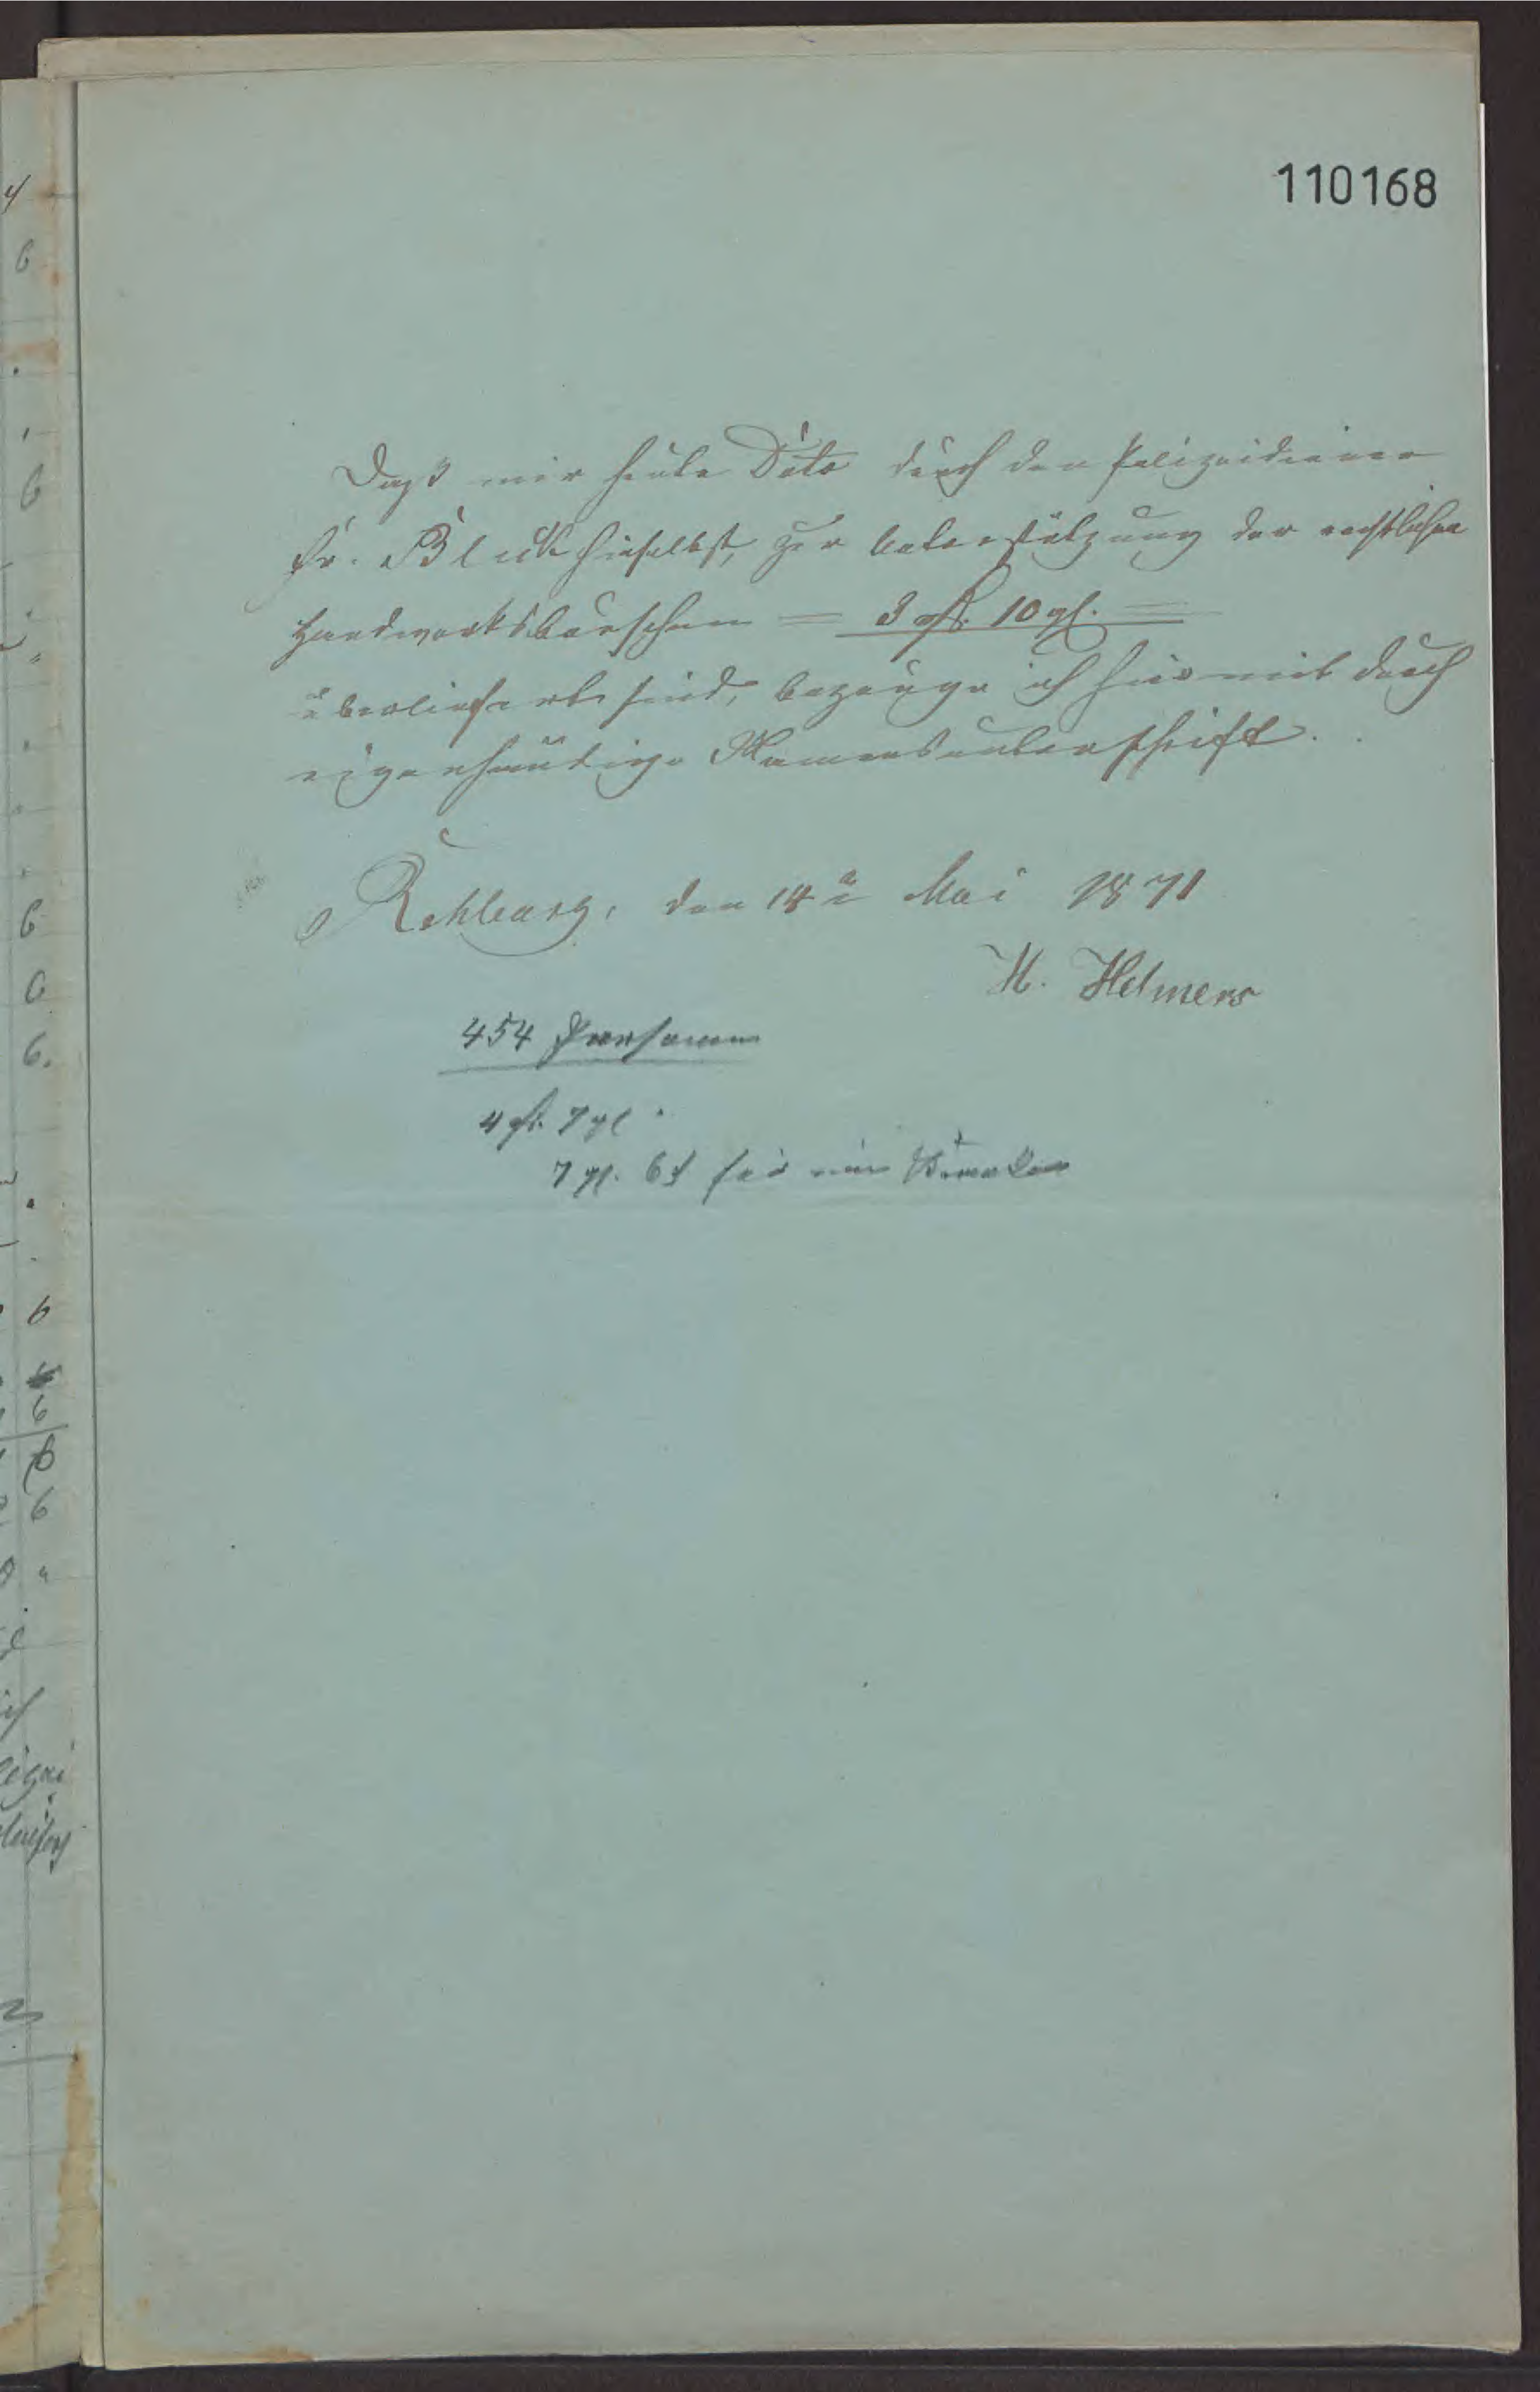 110168
Daß mir heute Dato durch den Polizeidiener
Fr. Block hieselbst, zur Unterstützung der
Handwerksburschen = 3 rth. 10 gl. =
überliefert sind, bezeuge ich hiermit durch
eigenhändige Namensunterschrift.
Rehburg, den 14n Mai 1871
H. Helmers
454 Personen
4 rth. 7 gl
7 gl. 6 d für ein